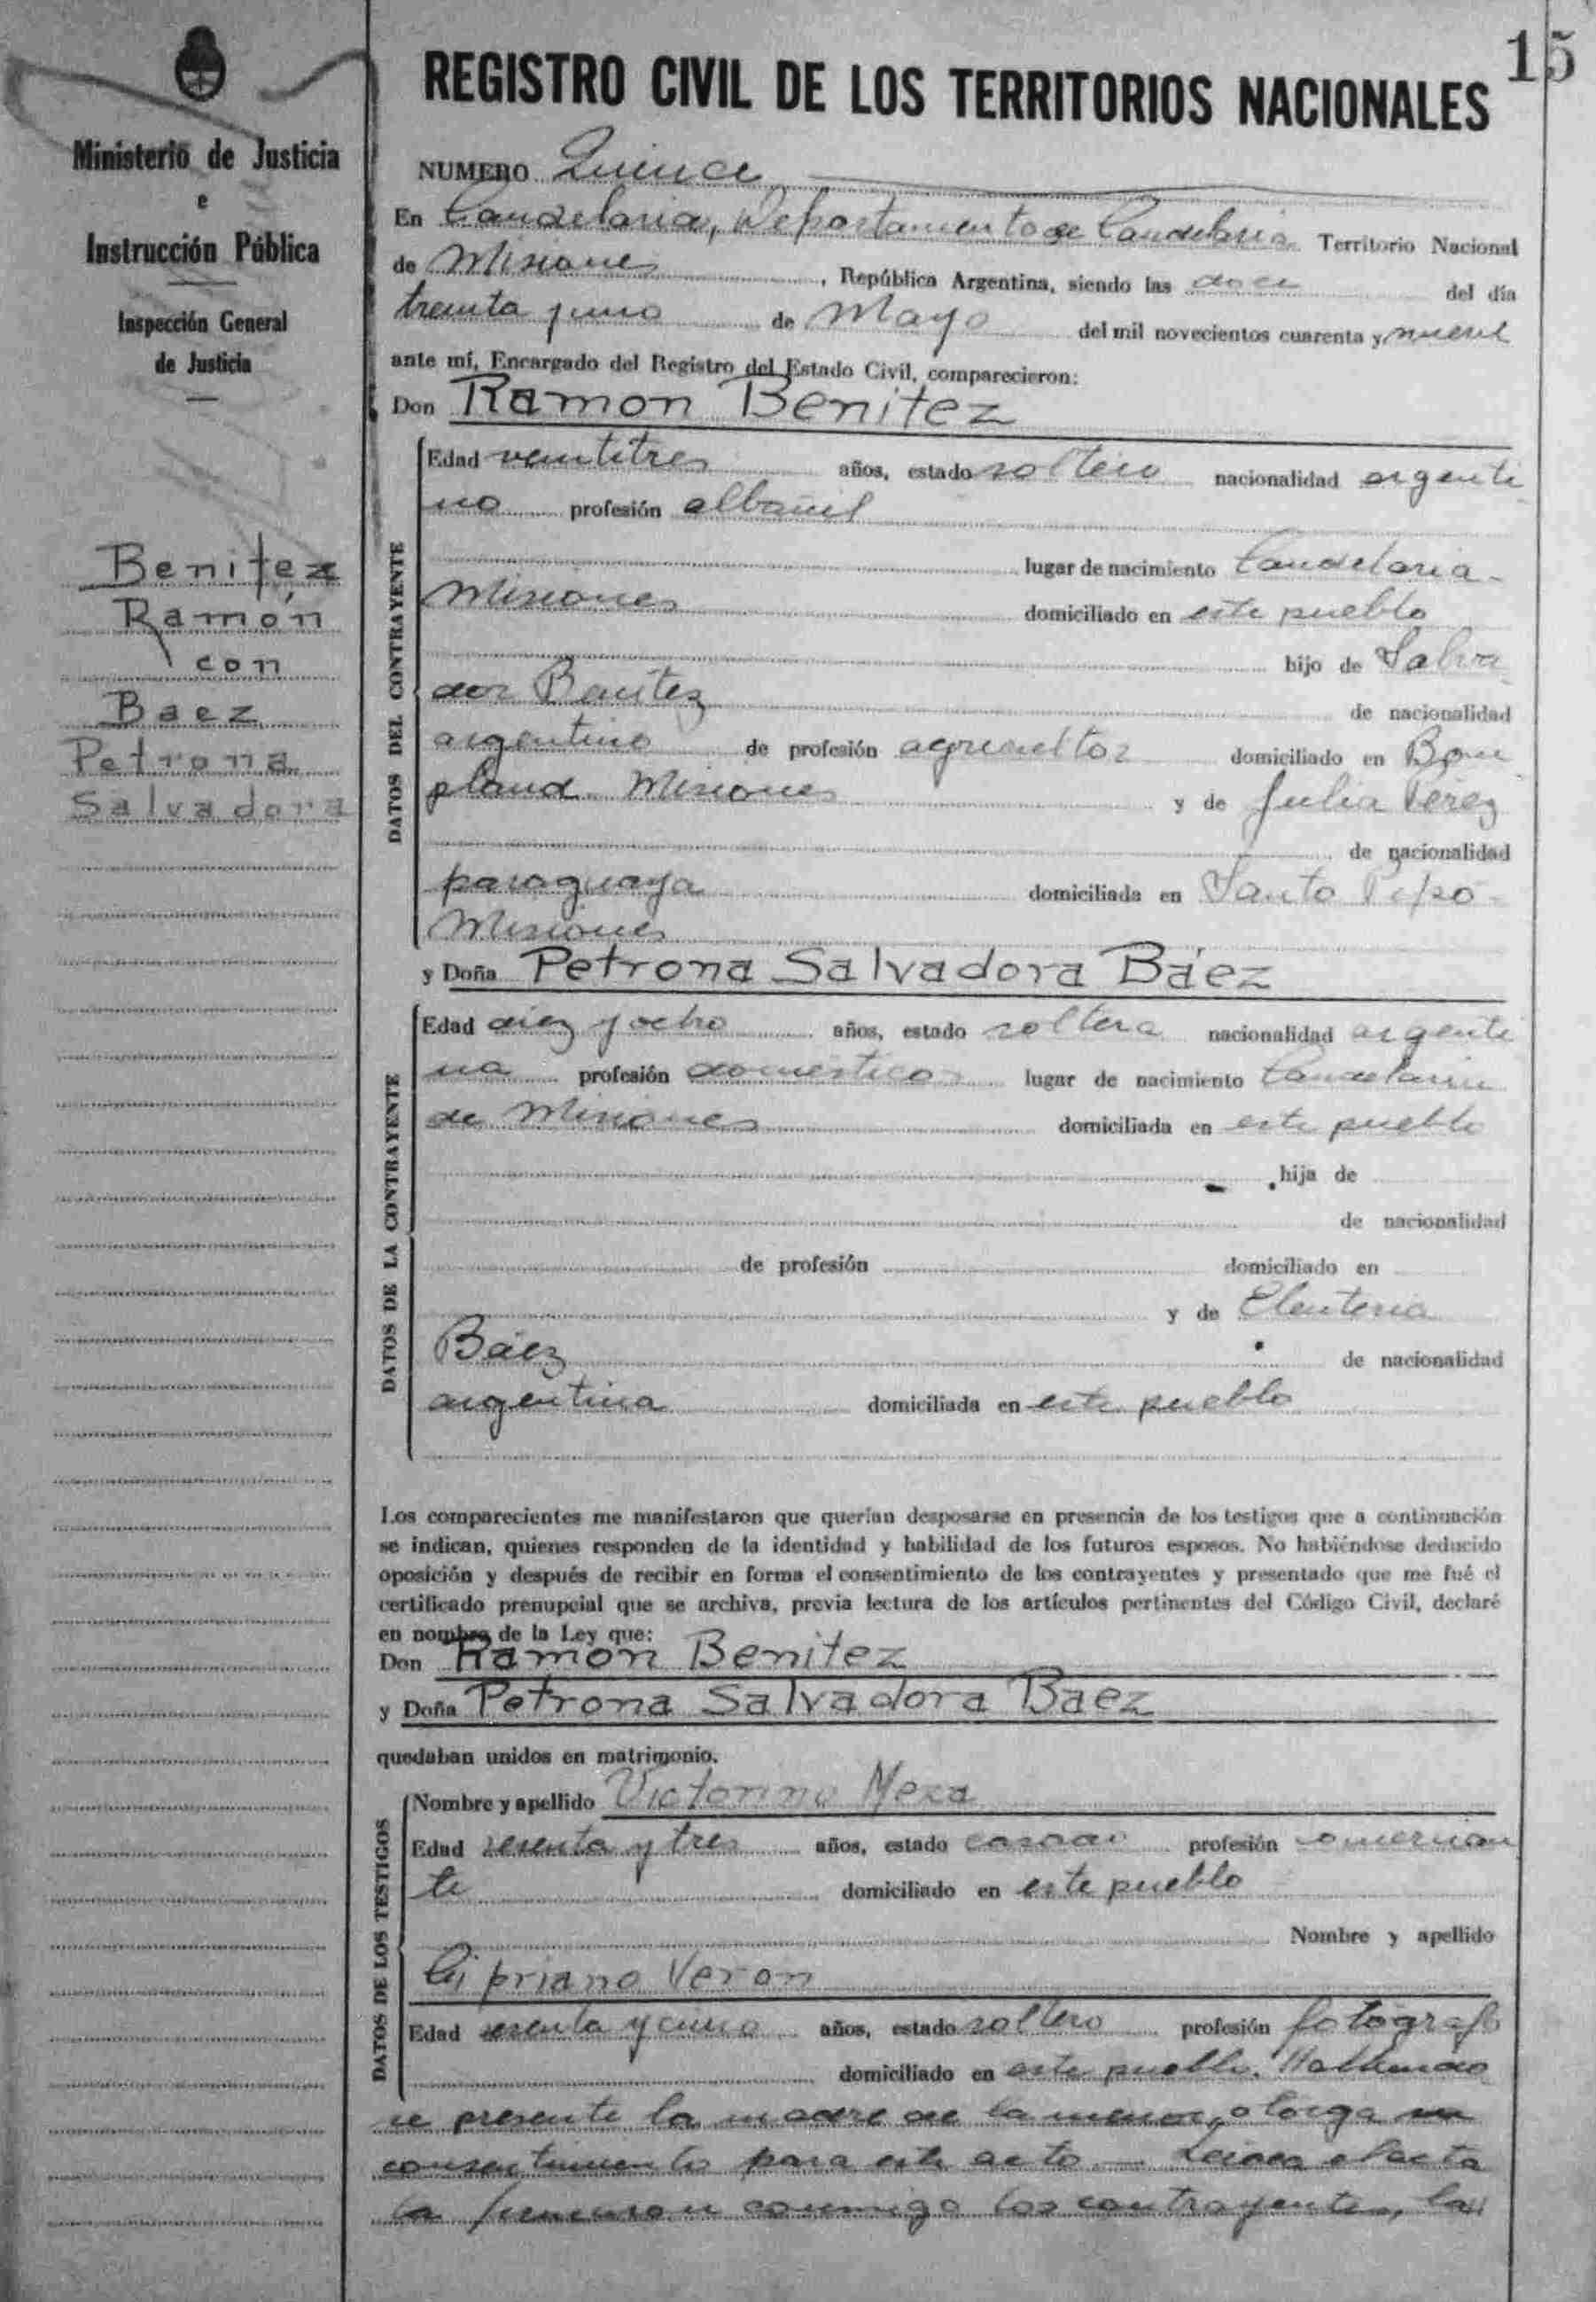 15
REGISTRO CIVIL DE LOS TERRITORIOS NACIONALES
Ministerio de Justicia
e
Instrucción Pública
Inspección General
de Justicia
Benitez
Ramón
con
Baez
Petrona
Salvadora
NUMERO Quince
En Candelaria, Departamento de Candelaria Territorio Nacional
de Misiones, República Argentina, siendo las doce del día
treinta y uno de Mayo del mil novecientos cuarenta y nueve
ante mí, Encargado del Registro del Estado Civil, comparecieron:
Don Ramon Benitez
DATOS DEL CONTRAYENTE
Edad veintitres años, estado soltero nacionalidad argenti
no profesión albañil
lugar de nacimiento Candelaria-
Misiones domiciliado en este pueblo
hijo de Salva
dor Benitez de nacionalidad
argentino de profesión agricultor domiciliado en Bon
pland Misiones y de Julia Pérez
de nacionalidad
paraguaya domiciliada en Santo Pipó-
Misiones
y Doña Petrona Salvadora Báez
DATOS DE LA CONTRAYENTE
Edad diez y ocho años, estado soltera nacionalidad argenti
na profesión domesticos lugar de nacimiento Candelaria
de Misiones domiciliada en este pueblo
hija de
de nacionalidad
de profesión domiciliado en
y de Eleuteria
Báez de nacionalidad
argentina domiciliada en este pueblo
Los comparecientes me manifestaron que querían desposarse en presencia de los testigos que a continuación
se indican, quienes responden de la identidad y habilidad de los futuros esposos. No habiéndose deducido
oposición y después de recibir en forma el consentimiento de los contrayentes y presentado que me fué el
certificado prenupcial que se archiva, previa lectura de los artículos pertinentes del Código Civil, declaré
en nombre de la Ley que:
Don Ramon Benitez
y Doña Petrona Salvadora Baez
quedaban unidos en matrimonio.
DATOS DE LOS TESTIGOS
Nombre y apellido Victorino Meza
Edad sesenta y tres años, estado casado profesión comercian
te domiciliado en este pueblo
Nombre y apellido
Cipriano Veron
Edad sesenta y cinco años, estado soltero profesión fotógrafo
domiciliado en este pueblo. Hallandose
se presente la madre de la menor, otorga su
consentimiento para este acto — Leida el acta
la firmaron conmigo los contrayentes, la